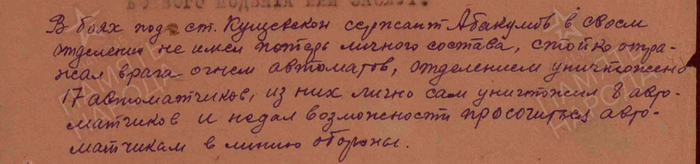 В боях под ст. Кущевской сержант Абакумов в своем
отделении не имел потерь личного состава, стойко отра-
жал врага огнем автоматов, отделением уничтожено
17 автоматчиков, из них лично сам уничтожил 8 авто-
матчиков и недал возможности просочиться авто-
матчикам в линию обороны.